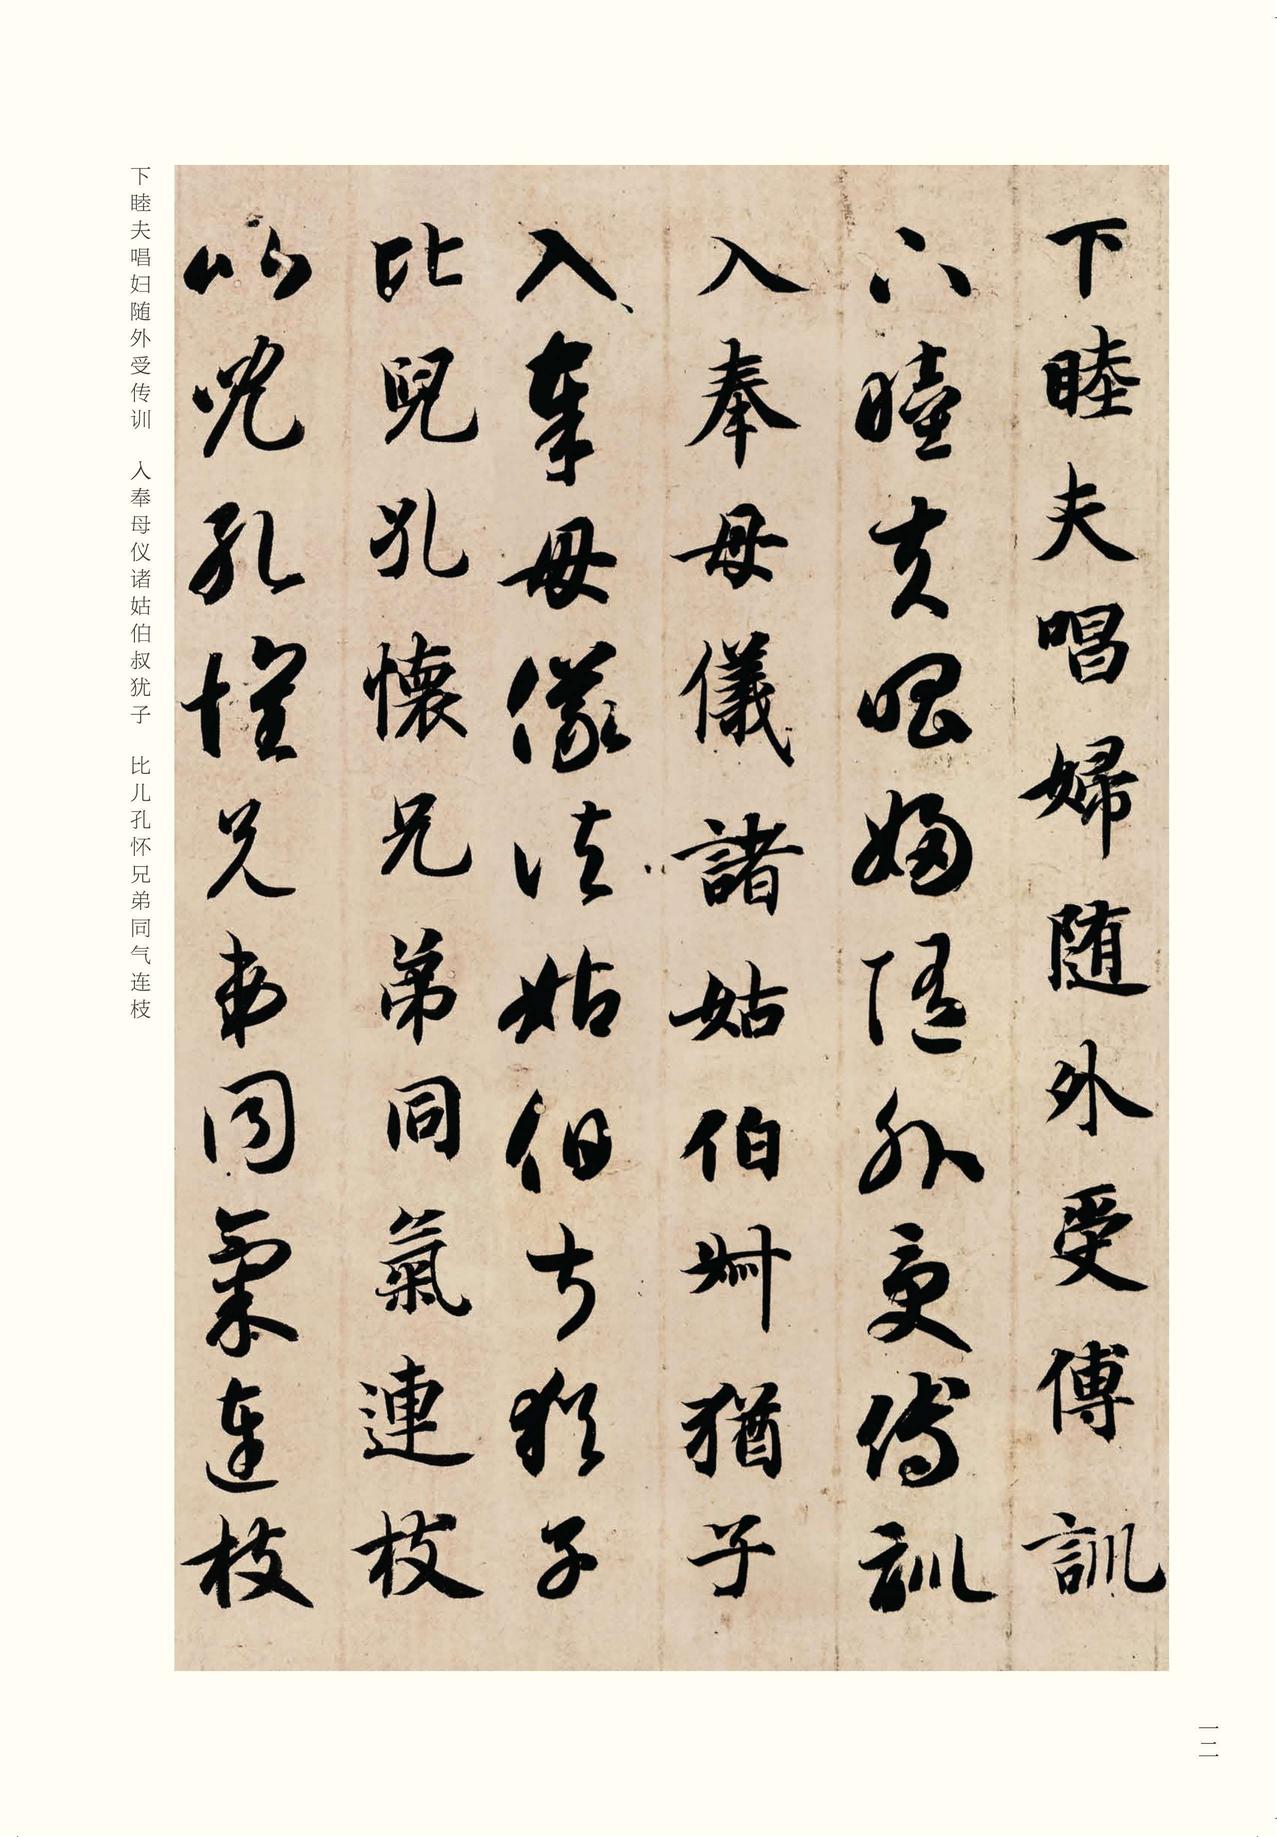 下睦夫唱婦随外受傅訓
下睦夫唱婦随外受傅訓
入奉母儀諸姑伯叔猶子
入奉母儀諸姑伯叔猶子
比兒孔懷兄弟同氣連枝
比兒孔懷兄弟同氣連枝
下睦夫唱妇随外受传训 入奉母仪诸姑伯叔犹子 比儿孔怀兄弟同气连枝
一二